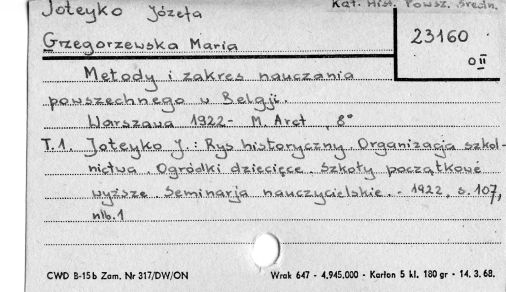 Joteyko Józefa
Kat. Hist. Powsz. Średn.
Grzegorzewska Maria
23160
O II
Metody i zakres nauczania
powszechnego w Belgji.
Warszawa 1922- M. Arct, 8°
T.1. Joteyko J.: Rys historyczny. Organizacja szkol-
nictwa. Ogródki dziecięce. Szkoły początkowe
wyższe. Seminarja nauczycielskie. - 1922, s. 107,
nlb. 1
CWD B-15b Zam. Nr 317/DW/ON
Wrak 647 - 4.945.000 - Karton 5 kl. 180 gr - 14. 3. 68.